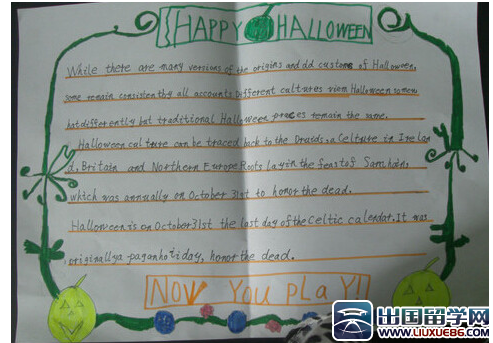 HAPPY HALLOWEEN
While there are many versions of the origins and old customs of Halloween,
some remain consistently all accounts Different cultures view Halloween somew
hat differently but traditional Halloween praces remain the same.
Halloween culture can be traced back to the Druids, a Celture in Irelan
d, Britain and Northern Europe Roots lay in the feast of Samhain,
which was annually on October 31st to honor the dead.
Halloween is on October 31st the last day of the Celtic calendar. It was
originally a pagan holiday, honor the dead.
NOW YOU PLAY!!
出国留学网
www.LIUXUE86.COM